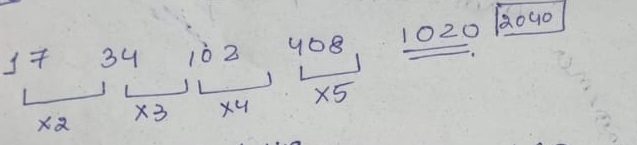 17 34 102 408 1020 2040
x2 x3 x4 x5